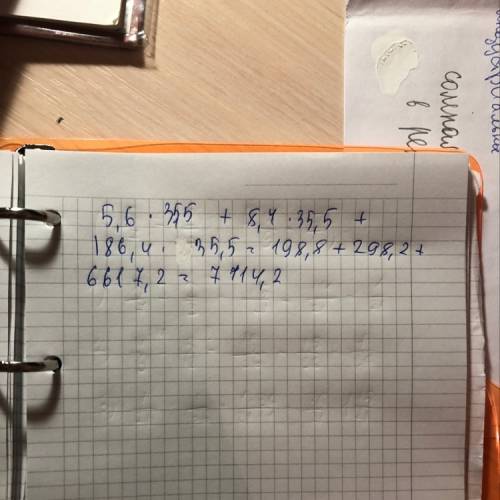 5,6 · 35,5 + 8,4 · 35,5 +
186,4 · 35,5 = 198,8 + 298,2 +
6617,2 = 7114,2